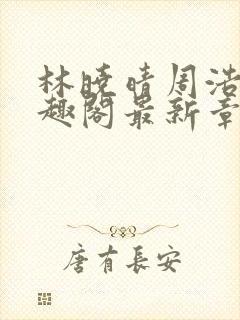 林晓晴周浩
趣阁最新章
唐有长安